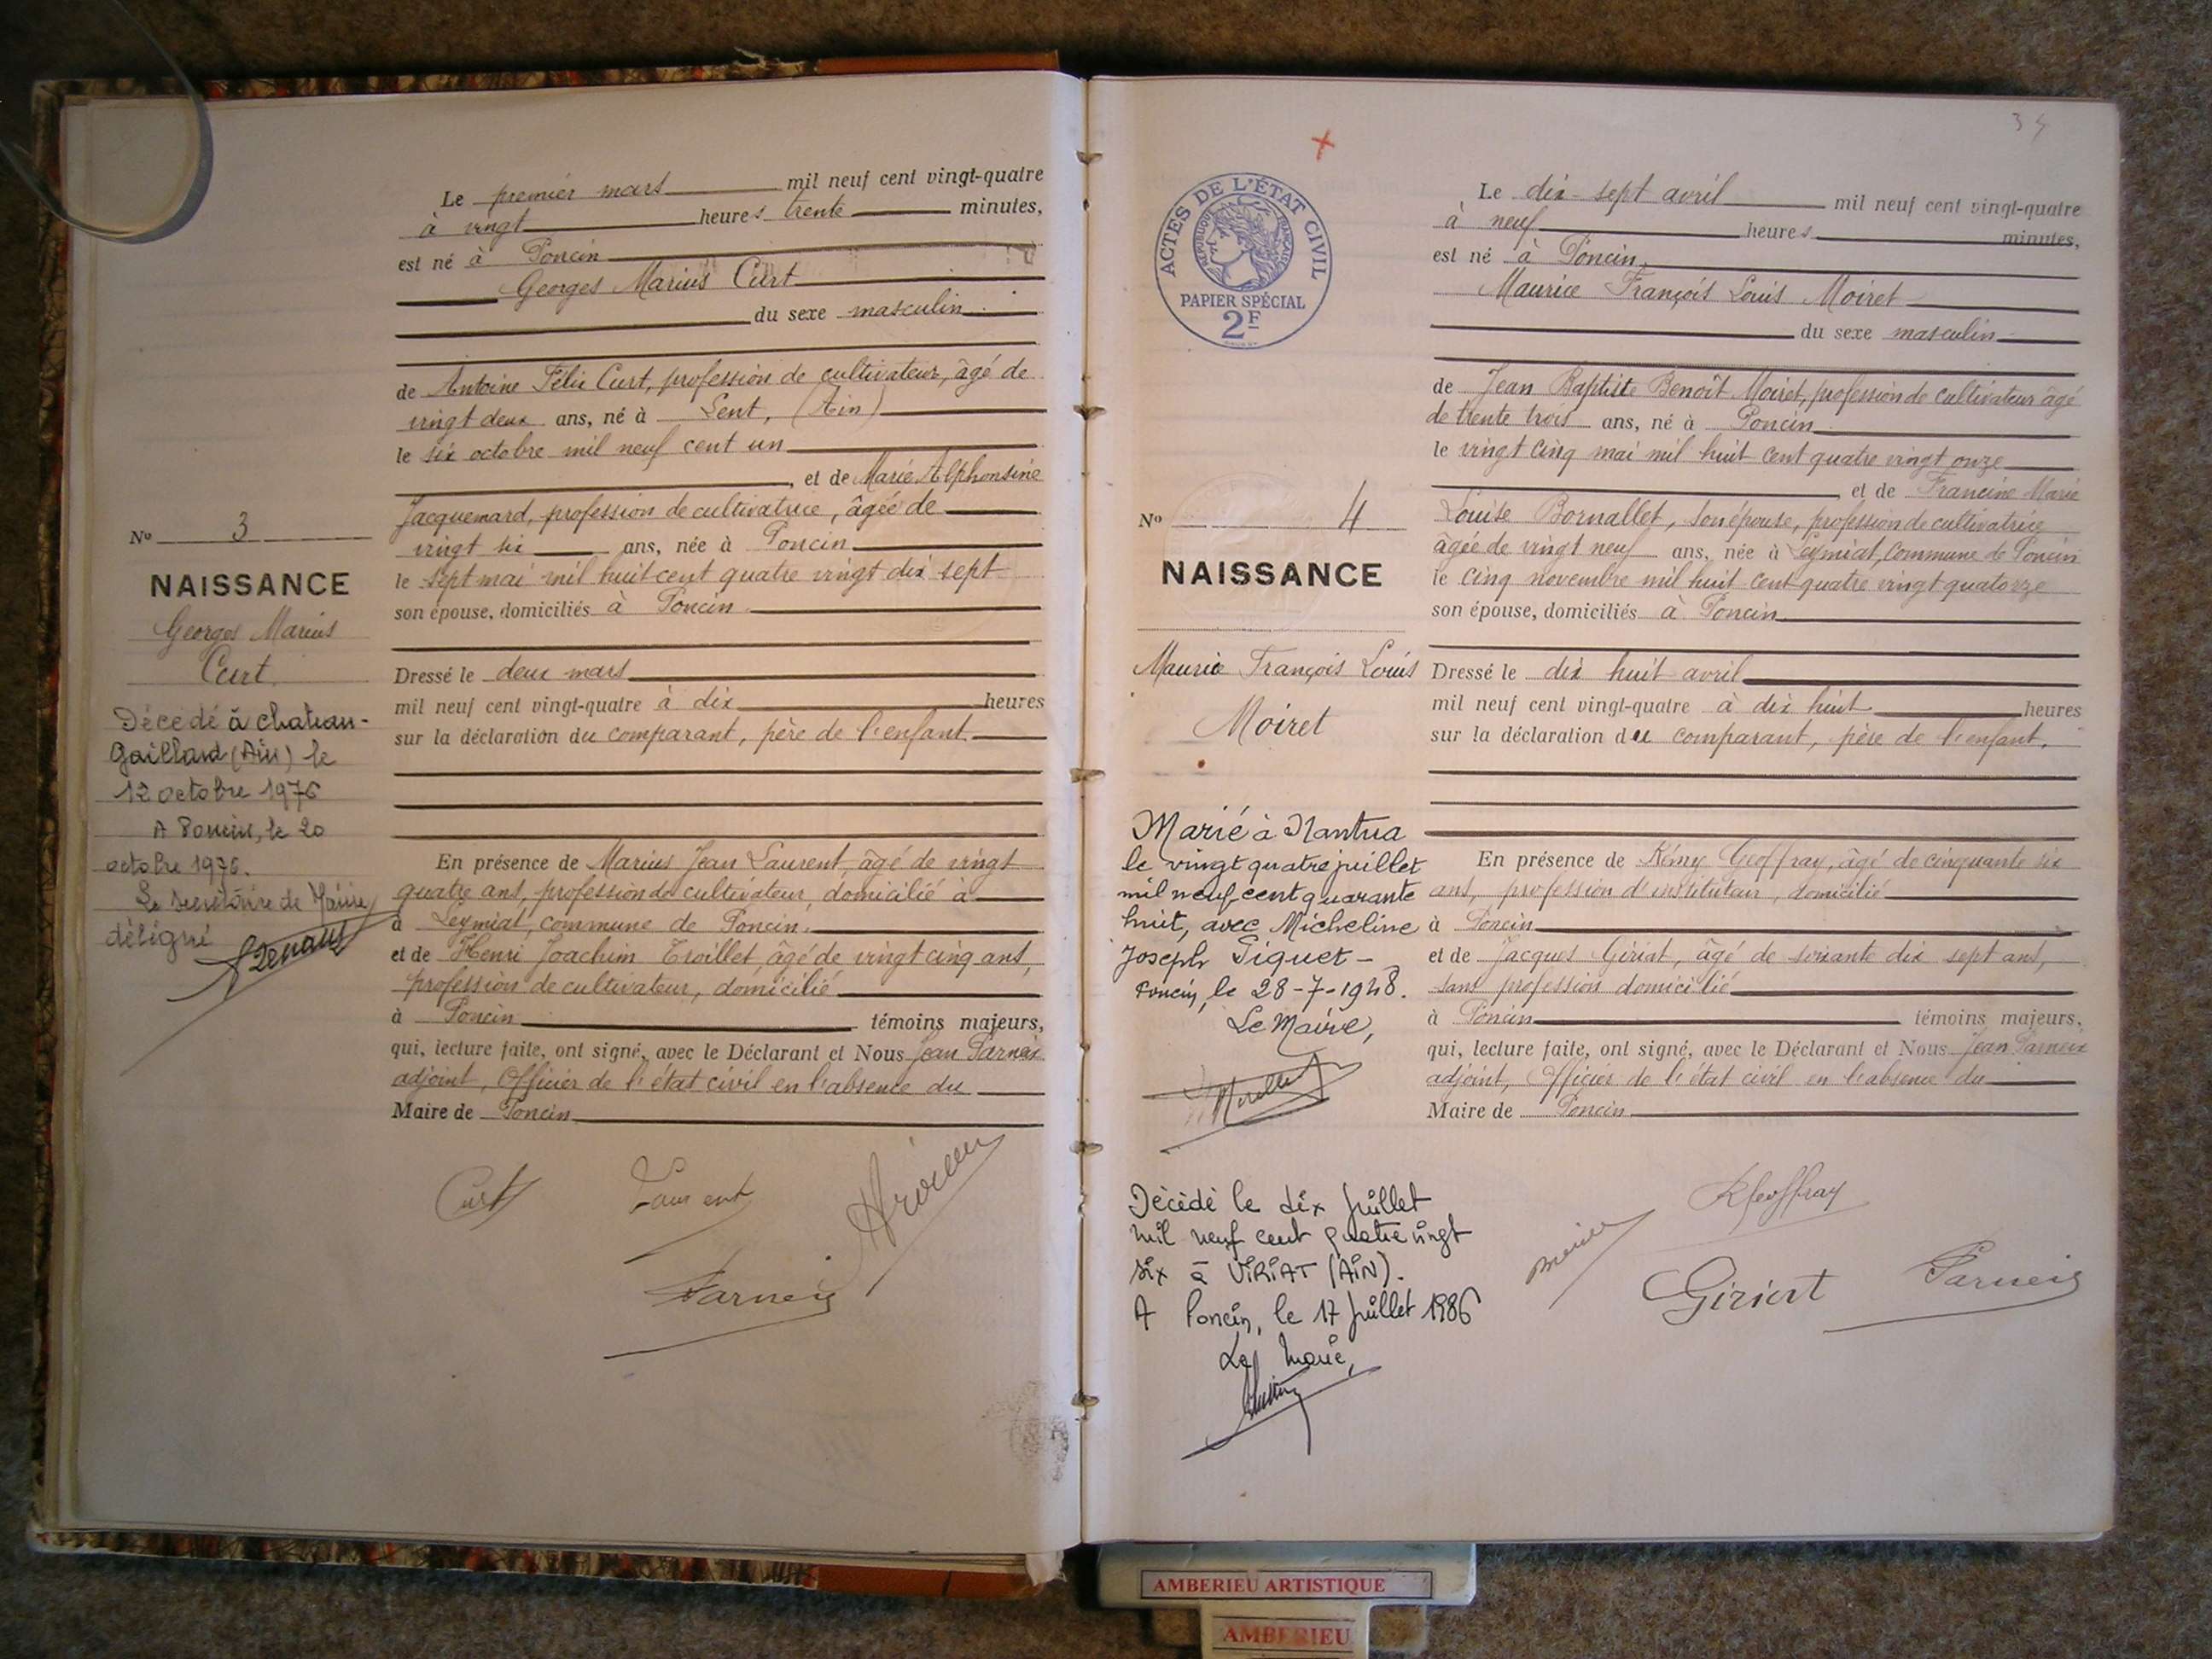 Le premier mars mil neuf cent vingt-quatre
à vingt heures trente minutes,
est né à Poncin
Georges Marius Curt
du sexe masculin
de Antoine Félix Curt, profession de cultivateur, âgé de
vingt deux ans, né à Lent, (Ain)
le six octobre mil neuf cent un
, et de Marie Alphonsine
Jacquemard, profession de cultivatrice, âgée de
vingt six ans, née à Poncin
le sept mai mil huit cent quatre vingt dix sept
son épouse, domiciliés à Poncin
Dressé le deux mars
mil neuf cent vingt-quatre à dix heures
sur la déclaration du comparant, père de l'enfant
En présence de Marius Jean Laurent, âgé de vingt
quatre ans, profession de cultivateur, domicilié à
à Leymiat, commune de Poncin.
et de Henri Joachim Troillet, âgé de vingt cinq ans,
profession de cultivateur, domicilié
à Poncin témoins majeurs,
qui, lecture faite, ont signé, avec le Déclarant et Nous Jean Parneix
adjoint, Officier de l'état civil en l'absence du
Maire de Poncin
Curt Laurent
Parneix
No 3
NAISSANCE
Georges Marius
Curt
Décédé à Chateau-
Gaillard (Ain) le
12 octobre 1976
A Poncin, le 20
octobre 1976.
Le secrétaire de Mairie
délégué
34
ACTES DE L'ÉTAT CIVIL
RÉPUBLIQUE FRANÇAISE
PAPIER SPÉCIAL
2F
No 4
NAISSANCE
Maurice François Louis
Moiret
Marié à Nantua
le vingt quatre juillet
mil neuf cent quarante
huit, avec Micheline
Joseph Piquet -
Poncin, le 28-7-1948.
Le Maire,
Décédé le dix Juillet
mil neuf cent quatre vingt
six à VIRIAT (AIN).
A Poncin, le 17 Juillet 1986
Le Maire,
Le dix-sept avril mil neuf cent vingt-quatre
à neuf heures minutes,
est né à Poncin
Maurice François Louis Moiret
du sexe masculin
de Jean Baptiste Benoît Moiret, profession de cultivateur âgé
de trente trois ans, né à Poncin
le vingt cinq mai mil huit cent quatre vingt onze
et de Francine Marie
Louise Bornallet, son épouse, profession de cultivatrice
âgée de vingt neuf ans, née à Leymiat, commune de Poncin
le cinq novembre mil huit cent quatre vingt quatorze
son épouse, domiciliés à Poncin
Dressé le dix huit avril
mil neuf cent vingt-quatre à dix huit heures
sur la déclaration du comparant, père de l'enfant.
En présence de Rémy Geoffray, âgé de cinquante six
ans, profession d'instituteur, domicilié
à Poncin
et de Jacques Giriat, âgé de soixante dix sept ans,
sans profession domicilié
à Poncin témoins majeurs,
qui, lecture faite, ont signé, avec le Déclarant et Nous Jean Parneix
adjoint, Officier de l'état civil en l'absence du
Maire de Poncin
RGeoffray
Moiret
Giriat
Parneix
AMBERIEU ARTISTIQUE
AMBERIEU